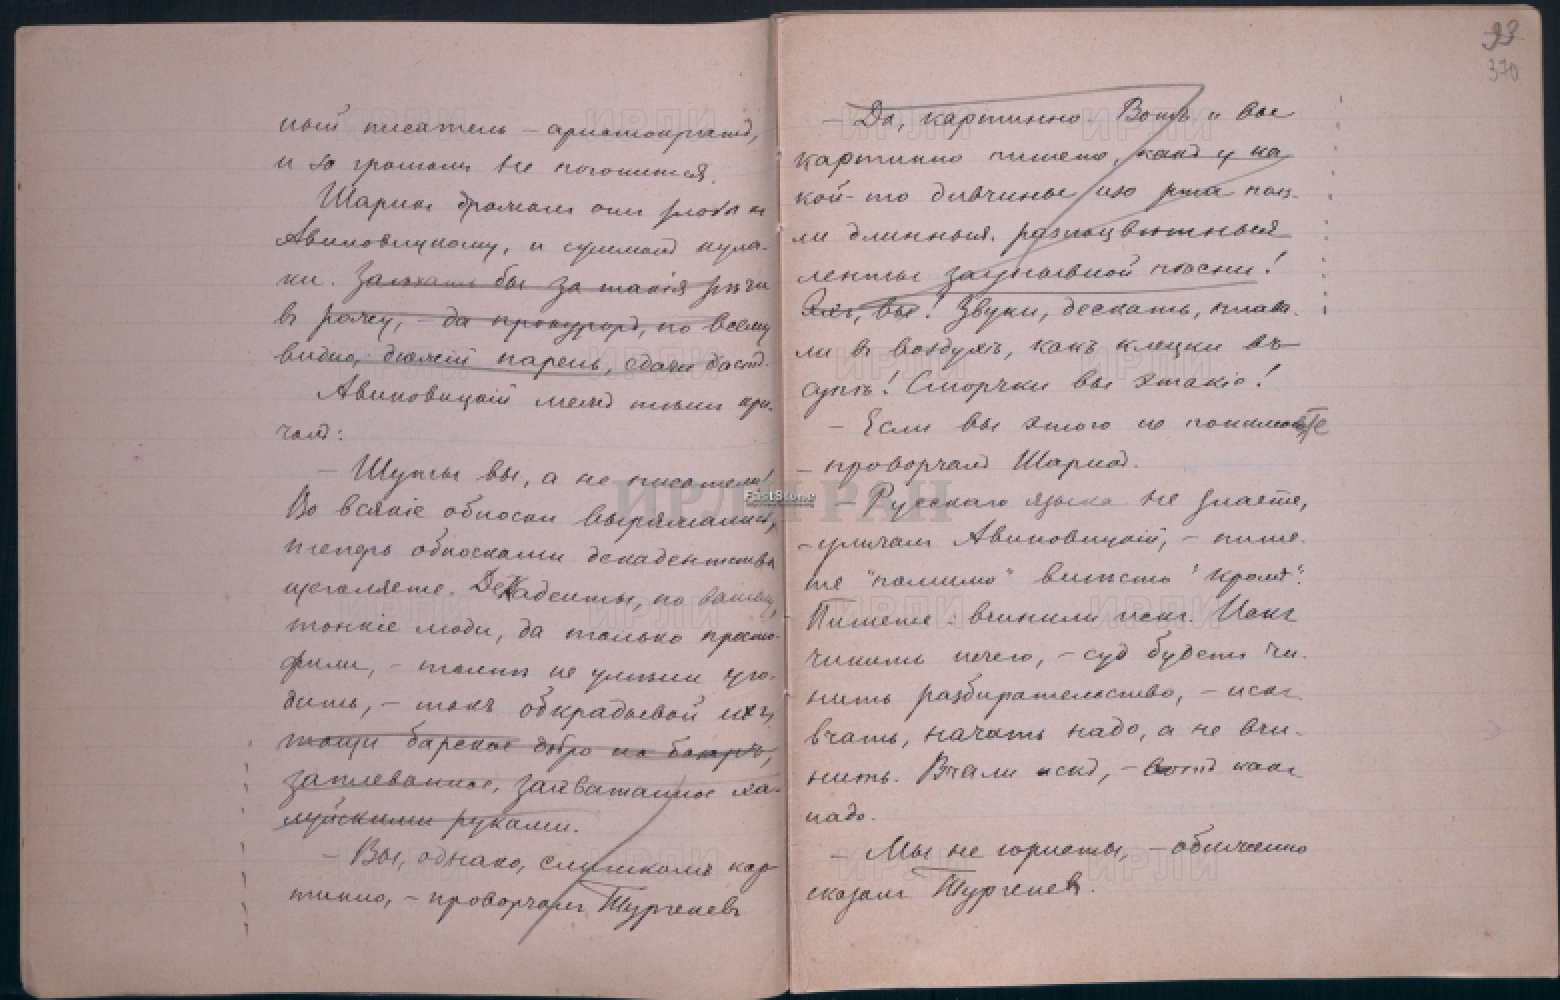 ный писатель – аристократъ,
и за грошом не погонится.
Шарик дрожал от злости к
Авиновицкому, и сжимал кула-
ки. Заехать бы за такія рѣчи
в рожу, – да прокуроръ, по всему
видно, дюжій парень, сдачи дастъ.
Авиновицкій межд тѣм кри-
чалъ:
– Шуты вы, а не писатели!
Во всякіе обноски вырядились,
теперь обносками декадентства
щеголяете. Декаденты, по вашему,
тонкіе люди, да только просто-
фили, – толпѣ не умѣли уго-
дить, – такъ обкрадывай ихъ,
тащи барское добро на базаръ,
заплеванное, захватанное ха-
луйскими руками.
– Вы, однако, слишкомъ кар-
тинно, – проворчал Тургеневъ
93
370
– Да, картинно. Вотъ и вы
картинно пишете, какъ у ка-
кой-то дѣвчины изо рта полз-
ли длинныя, разноцвѣтныя
ленты заунывной пѣсни!
Эхъ, вы! Звуки, дескать, плава-
ли в воздухѣ, какъ клецки въ
супѣ! Сморчки вы этакіе!
– Если вы этого не понимаете
– проворчалъ Шарикъ.
– Русскаго языка не знаете,
– уличал Авиновицкій, – пише-
те "помимо" вмѣсто "кромѣ".
Пишете: вчинили иск. Иск
чинить нечего, – суд будет чи-
нить разбирательство, – иск
вчать, начать надо, а не вчи-
нить. Вчали искъ, – вотъ как
надо.
– Мы не юристы, – обиженно
сказал Тургенев.
ИРЛИ РАН
FastStone
ИРЛИ